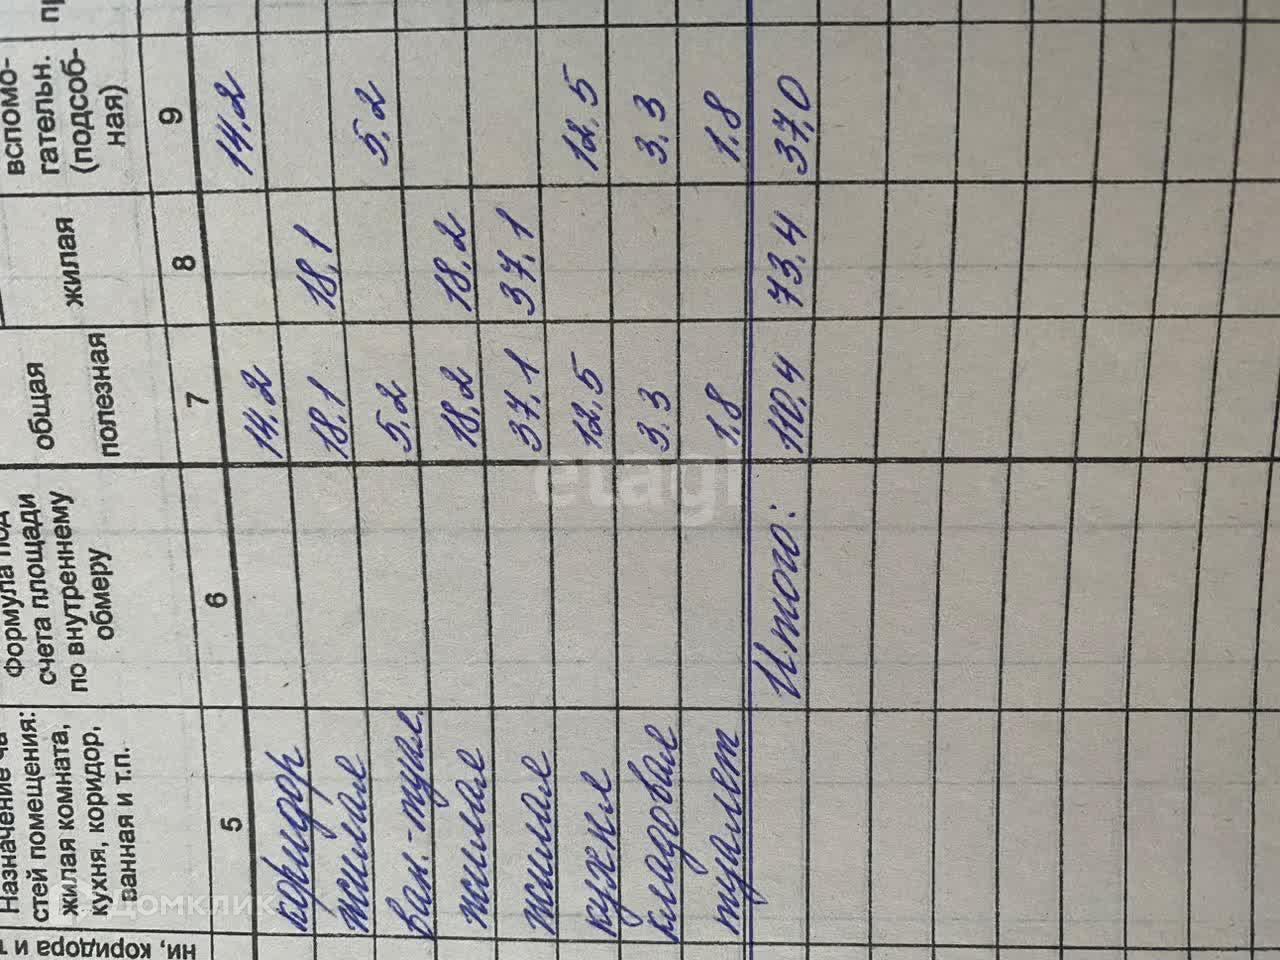 ни, коридора и т
Назначение ча
стей помещения:
жилая комната,
кухня, коридор,
ванная и т.п.
Формула под
счета площади
по внутреннему
обмеру
общая
полезная
жилая
вспомо-
гательн.
(подсоб-
ная)
5 6 7 8 9
коридор 14.2 14.2
жилая 18.1 18.1
ван.-туал. 5.2 5.2
жилая 18.2 18.2
жилая 37.1 37.1
кухня 12.5 12.5
кладовая 3.3 3.3
туалет 1.8 1.8
Итого: 110.4 73.4 37.0
etagi
домклик